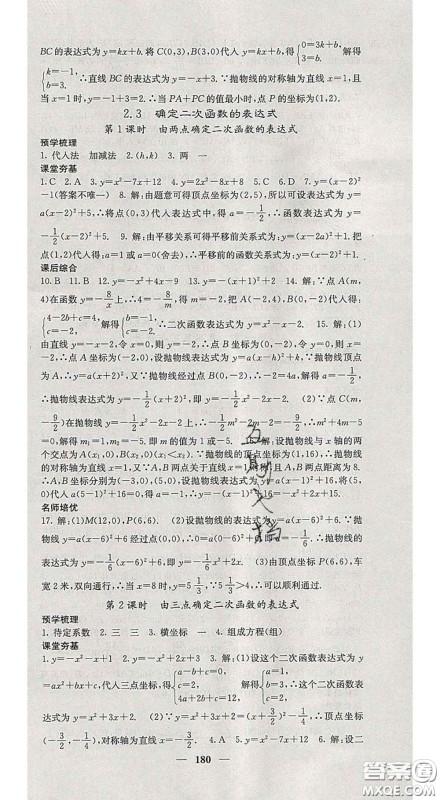 BC的表达式为y=kx+b.将C(0,3),B(3,0)代入y=kx+b,得{0=3k+b, 3=b. 解得
{k=-1, b=3. ∴直线BC的表达式为y=-x+3.∵抛物线的对称轴为直线x=1,且
当x=1时,y=-1+3=2,∴当PA+PC的值最小时,点P的坐标为(1,2).
2.3 确定二次函数的表达式
第1课时 由两点确定二次函数的表达式
预学梳理
1.代入法 加减法 2.(h,k) 3.两 一
课堂夯基
1.C 2.A 3.y=x²-7x+12 4.y=2x²+8x-2 5.C 6.D 7.y=(x-2)²
-1(答案不唯一) 8.解:由题意可得顶点坐标为(2,5),所以可设表达式为y=
a(x-2)²+5,将点(0,3)代入表达式中,得a=-1/2,∴函数表达式为y=
-1/2(x-2)²+5. 9.解:由平移关系可得平移前函数关系式为y=(x-2a)²+1.把
点(2,1)代入,得a=1或a=0(舍去),∴平移前的函数关系式为y=(x-2)²+1.
课后综合
10.B 11.B 12.y=-x²+4x-9 13.y=-(x+1)²+2 14.解:∵点A(m,
4)在函数y=-8/x上,∴4=-8/m,得m=-2,∴A(-2,4),B(2,-4)代入,得
{4-2b+c=4, 4+2b+c=-4. 解得{b=-2, c=-2. ∴二次函数表达式为y=x²-2x-2. 15.解:(1)
由直线y=-x-2,令x=0,则y=-2,∴点B坐标为(0,-2),令y=0,则x=
-2,∴点A坐标为(-2,0).设抛物线表达式为y=a(x-h)²+k,∵抛物线顶点
为A,∴y=a(x+2)².又∵抛物线经过点B(0,-2),∴-2=4a,解得a=
-1/2,∴抛物线表达式为y=-1/2(x+2)²,即y=-1/2x²-2x-2. (2)∵点C(m,
-9/2)在抛物线y=-1/2x²-2x-2上,∴-1/2m²-2m-2=-9/2,∴m²+4m-5
=0,解得m₁=1,m₂=-5.即m的值为1或-5. 16.解:设抛物线与x轴的两
个交点为A(x₁,0),B(x₂,0)(x₁<x₂).∵抛物线的顶点坐标是(1,16),∴抛物线
的对称轴为直线x=1.又∵A,B两点关于直线x=1对称,且A,B两点距离为8.∴
A,B坐标分别为(-3,0),(5,0).设抛物线的表达式为y=a(x-1)²+16,将(5,
0)代入,得a(5-1)²+16=0,∴a=-1,∴抛物线的表达式为y=-(x-1)²+16.
名师培优
17.解:(1)M(12,0),P(6,6). (2)设抛物线的表达式为y=a(x-6)²+6,∵抛
物线y=a(x-6)²+6经过点(0,0),∴a(0-6)²+6=0,即a=-1/6,∴抛物线的
表达式为y=-1/6(x-6)²+6,即y=-1/6x²+2x. (3)由顶点坐标P(6,6),车
宽2米,双向通行,∴当x=8时,y=5 1/3.∵5 1/3>5,∴可以顺利通过.
第2课时 由三点确定二次函数的表达式
预学梳理
1.待定系数 2.三 三 3.横坐标 一 4.组成方程(组)
课堂夯基
1.y=-x²-x+1 2.y=x²+2x+3 3.解:(1)设这个二次函数表达式为y
=ax²+bx+c,代入三点坐标,得{a-b+c=0, a+b+c=6, 4a+2b+c=12. 解得{a=1, b=3, c=2. ∴这个二次函数表
达式为y=x²+3x+2. (2)∵y=x²+3x+2=(x+3/2)²-1/4,∴顶点坐标为
(-3/2,-1/4),对称轴为直线x=-3/2. 4.A 5.y=x²-7x+12 6.解:设二
180
答案圈
MXQE.COM